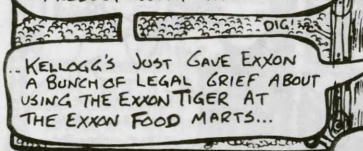 DIG!
..KELLOGG'S JUST GAVE EXXON
A BUNCH OF LEGAL GRIEF ABOUT
USING THE EXXON TIGER AT
THE EXXON FOOD MARTS...